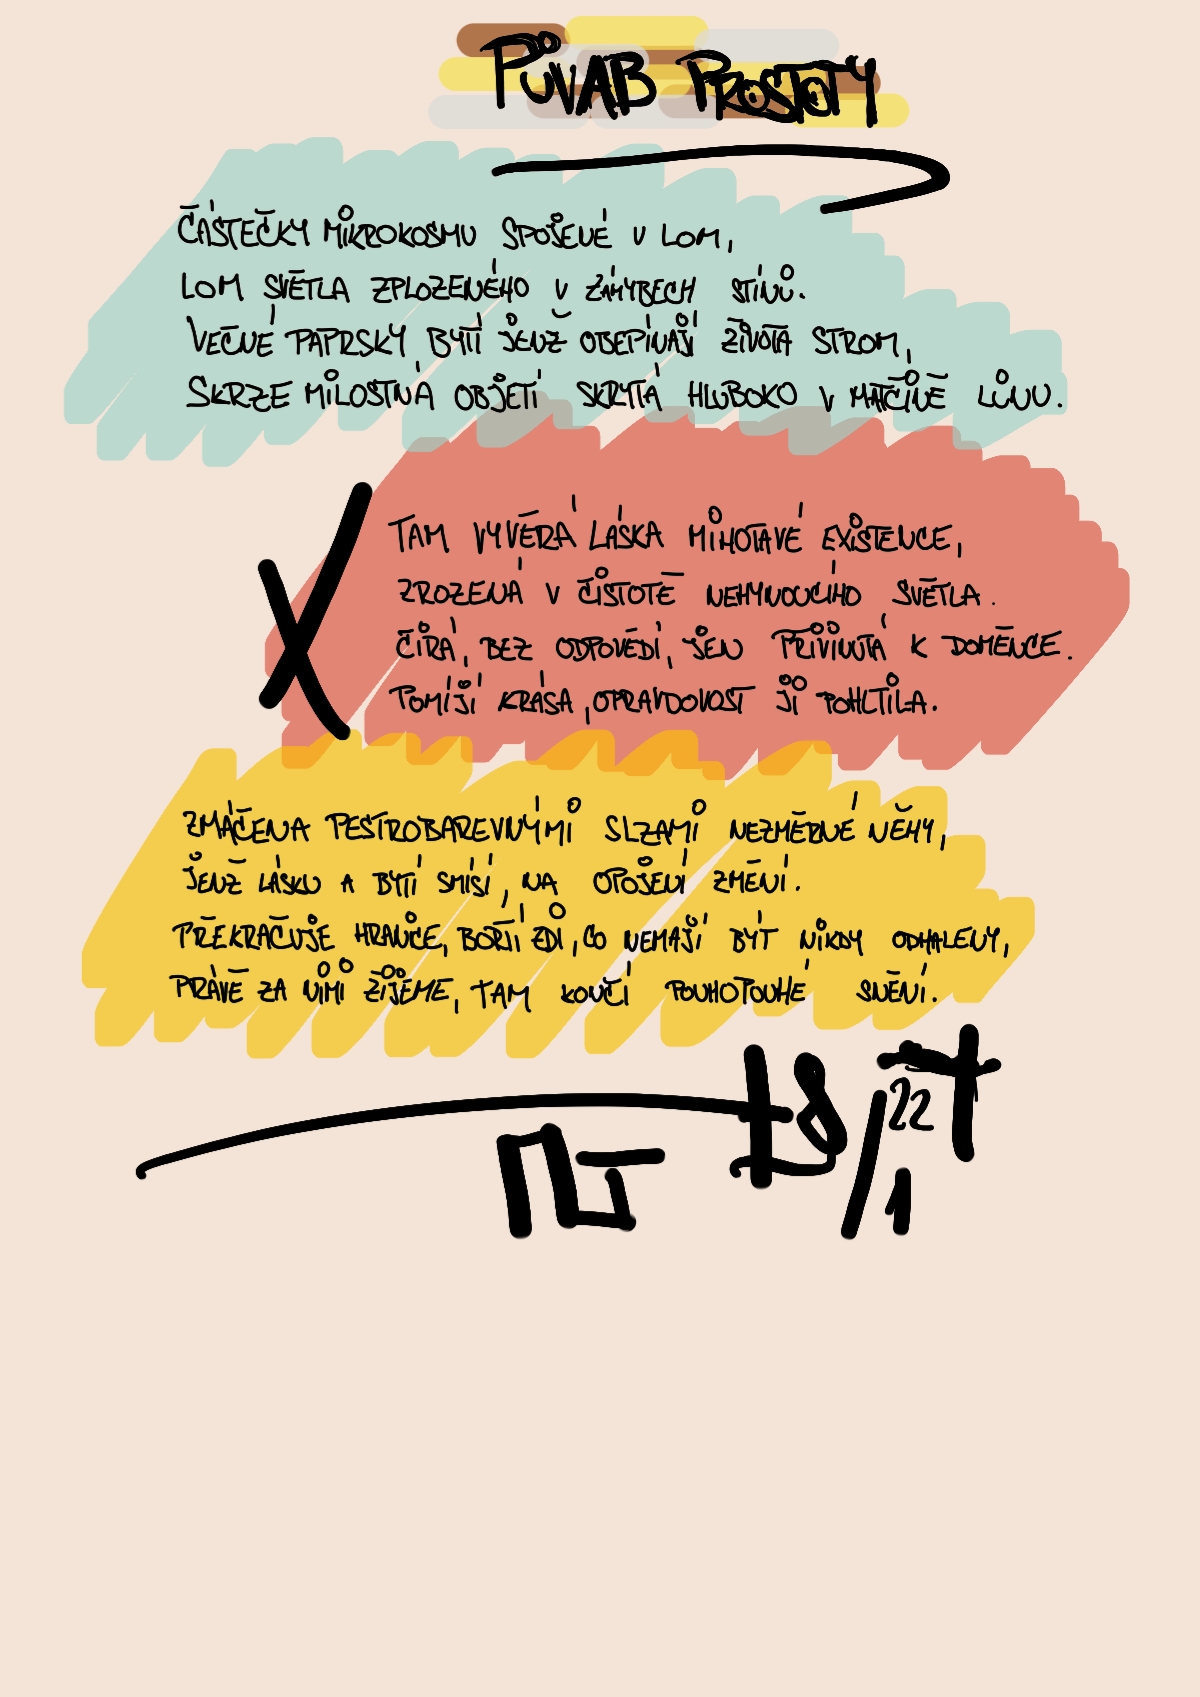 PŮVAB PROSTOTY
ČÁSTEČKY MIKROKOSMU SPOJENÉ V LOM,
LOM SVĚTLA ZPLOZENÉHO V ZÁHYBECH STÍNŮ.
VEČNÉ PAPRSKY BYTÍ JENŽ OBEPÍNAJÍ ŽIVOTA STROM,
SKRZE MILOSTNÁ OBJETÍ SKRYTÁ HLUBOKO V MATČINĚ LŮNU.
TAM VYVĚRÁ LÁSKA MIHOTAVÉ EXISTENCE,
ZROZENÁ V ČISTOTĚ NEHYNOUCÍHO SVĚTLA.
ČIRÁ, BEZ ODPOVĚDÍ, JEN PŘIVINUTÁ K DOMĚNCE.
POMÍJÍ KRÁSA, OPRAVDOVOST JI POHLTILA.
ZMÁČENA PESTROBAREVNÝMI SLZAMI NEZMĚRNÉ NĚHY,
JENŽ LÁSKU A BYTÍ SMÍSÍ, NA OPOJENÍ ZMĚNÍ.
PŘEKRAČUJE HRANICE, BOŘÍ ZDI, CO NEMAJÍ BÝT NIKDY ODHALENY,
PRÁVĚ ZA NIMI ŽIJEME, TAM KONČÍ POUHOPOUHÉ SNĚNÍ.
22
1